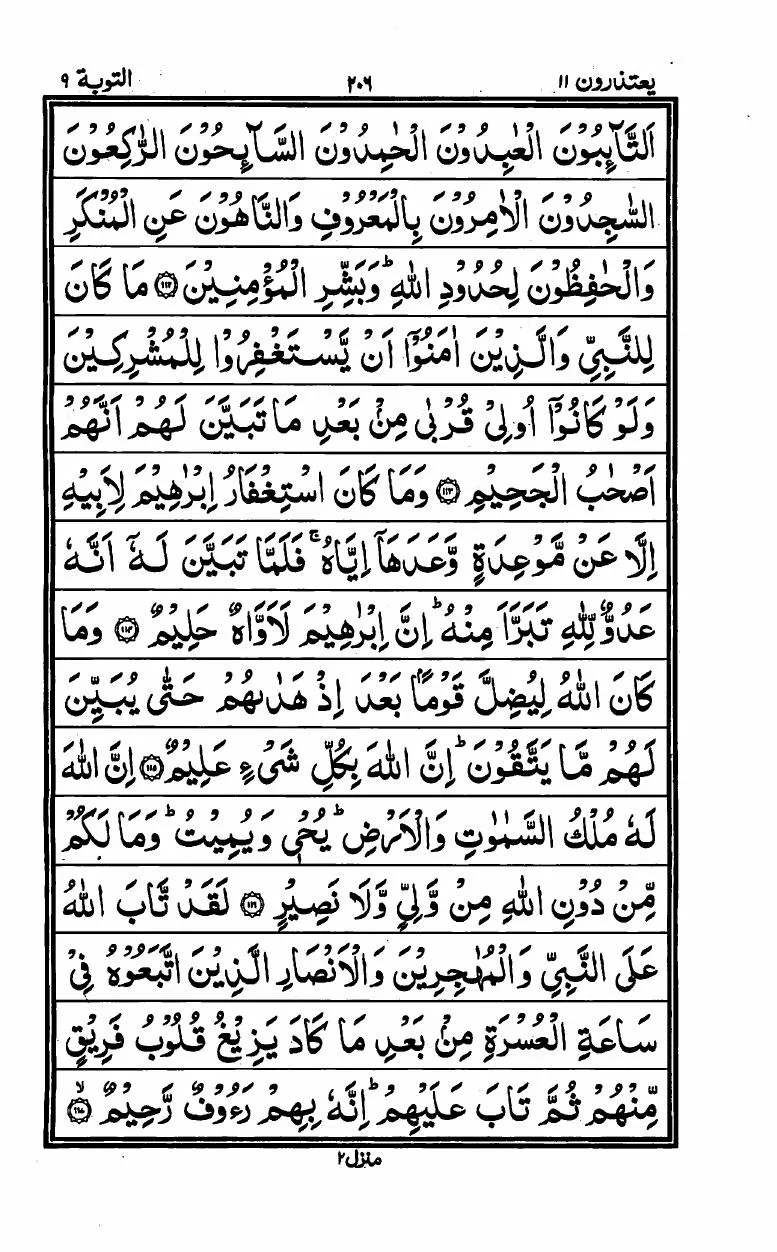 یعتذرون ۱۱ ۲۰۶ التوبة ۹
اَلتَّآىِٕبُوْنَ الْعٰبِدُوْنَ الْحٰمِدُوْنَ السَّآىِٕحُوْنَ الرّٰكِعُوْنَ
السّٰجِدُوْنَ الْاٰمِرُوْنَ بِالْمَعْرُوْفِ وَالنَّاهُوْنَ عَنِ الْمُنْكَرِ
وَالْحٰفِظُوْنَ لِحُدُوْدِ اللّٰهِ ؕ وَبَشِّرِ الْمُؤْمِنِيْنَ ۝۱۱۲ مَا كَانَ
لِلنَّبِيِّ وَالَّذِيْنَ اٰمَنُوْۤا اَنْ يَّسْتَغْفِرُوْا لِلْمُشْرِكِيْنَ
وَلَوْ كَانُوْۤا اُولِيْ قُرْبٰى مِنْۢ بَعْدِ مَا تَبَيَّنَ لَهُمْ اَنَّهُمْ
اَصْحٰبُ الْجَحِيْمِ ۝۱۱۳ وَمَا كَانَ اسْتِغْفَارُ اِبْرٰهِيْمَ لِاَبِيْهِ
اِلَّا عَنْ مَّوْعِدَةٍ وَّعَدَهَاۤ اِيَّاهُ ۚ فَلَمَّا تَبَيَّنَ لَهٗۤ اَنَّهٗ
عَدُوٌّ لِّلّٰهِ تَبَرَّاَ مِنْهُ ؕ اِنَّ اِبْرٰهِيْمَ لَاَوَّاهٌ حَلِيْمٌ ۝۱۱۴ وَمَا
كَانَ اللّٰهُ لِيُضِلَّ قَوْمًۢا بَعْدَ اِذْ هَدٰىهُمْ حَتّٰى يُبَيِّنَ
لَهُمْ مَّا يَتَّقُوْنَ ؕ اِنَّ اللّٰهَ بِكُلِّ شَيْءٍ عَلِيْمٌ ۝۱۱۵ اِنَّ اللّٰهَ
لَهٗ مُلْكُ السَّمٰوٰتِ وَالْاَرْضِ ؕ يُحْيٖ وَيُمِيْتُ ؕ وَمَا لَكُمْ
مِّنْ دُوْنِ اللّٰهِ مِنْ وَّلِيٍّ وَّلَا نَصِيْرٍ ۝۱۱۶ لَقَدْ تَّابَ اللّٰهُ
عَلَى النَّبِيِّ وَالْمُهٰجِرِيْنَ وَالْاَنْصَارِ الَّذِيْنَ اتَّبَعُوْهُ فِيْ
سَاعَةِ الْعُسْرَةِ مِنْۢ بَعْدِ مَا كَادَ يَزِيْغُ قُلُوْبُ فَرِيْقٍ
مِّنْهُمْ ثُمَّ تَابَ عَلَيْهِمْ ؕ اِنَّهٗ بِهِمْ رَءُوْفٌ رَّحِيْمٌ ۙ۝۱۱۷
منزل۲